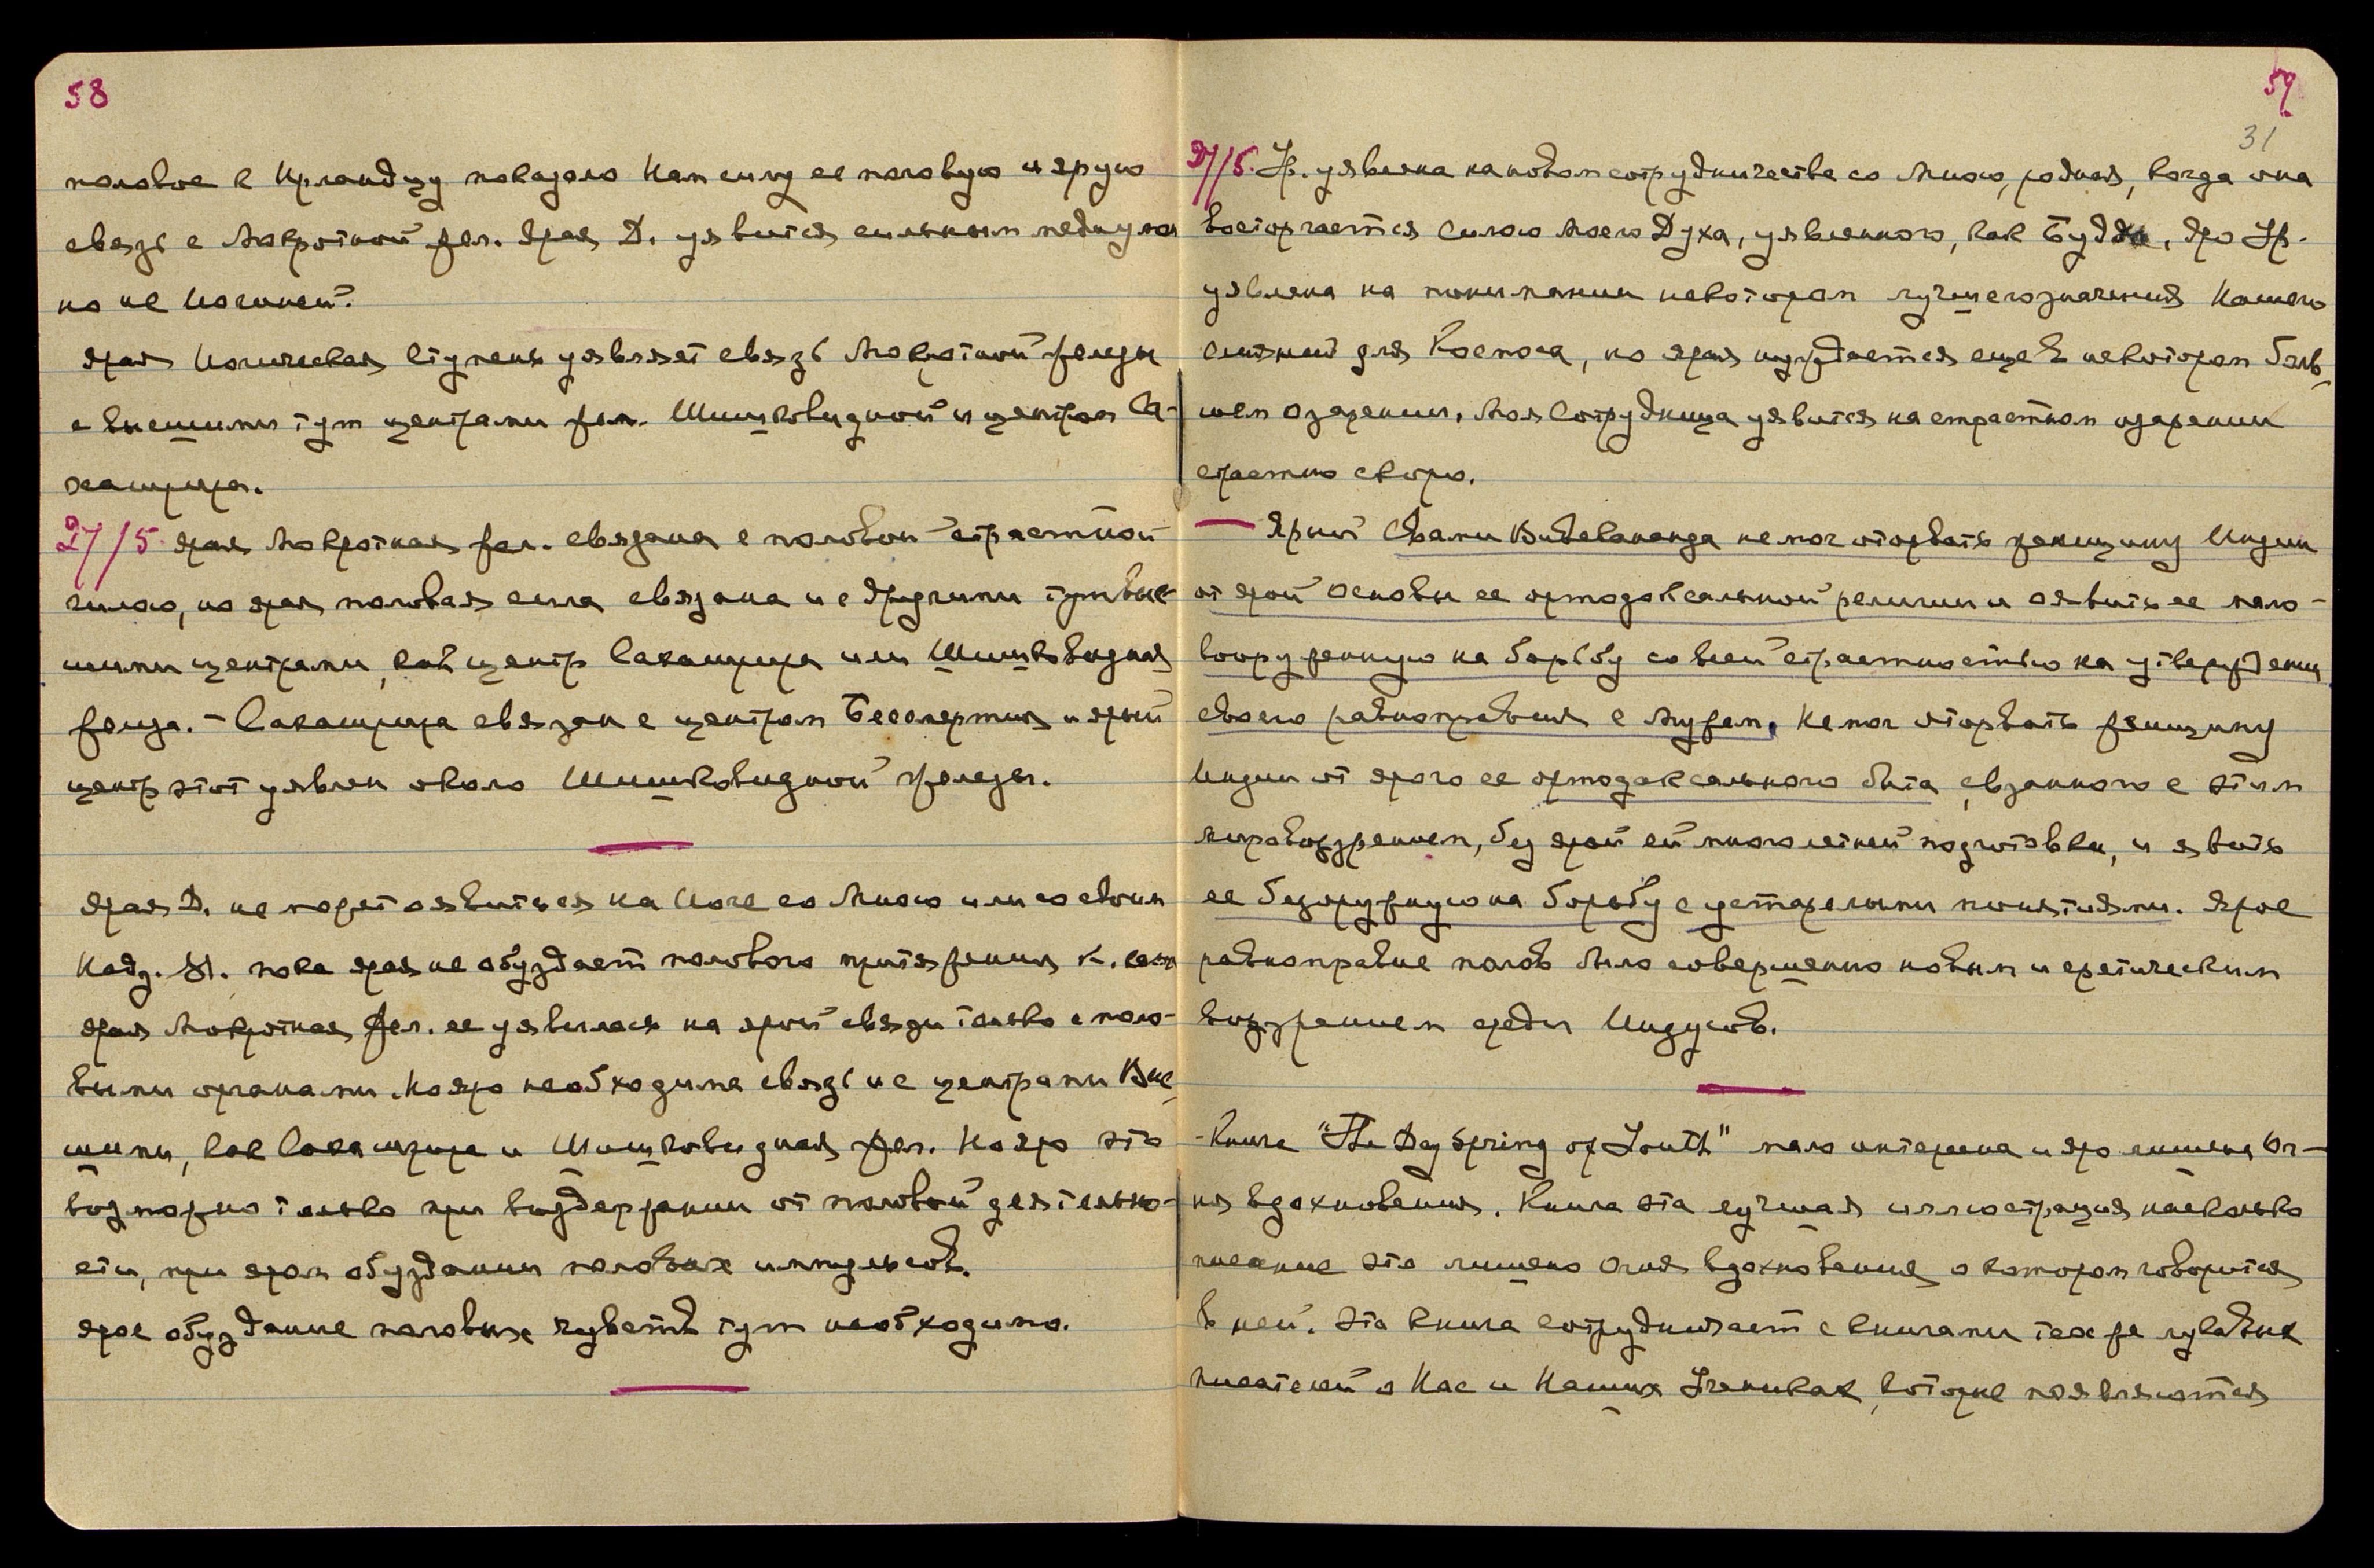 58
половое к Ирландцу показало Нам силу ее половую и ярую
связь с Мокротной жел. Ярая Д. уявится сильным медиумом
но не Йогиней.
Ярая Йогическая ступень уявляет связь Мокротной железы
с высшими тут центрами жел. Шишковидной и центром Са-
хасрара.
27/5 Ярая Мокротная жел. связана с половой страстной
силою, но ярая половая сила связана и с другими тут выс-
шими центрами, как центр Сахасрара или Шишковидная
железа. – Сахасрара связан с центром Бессмертия и ярый
центр этот уявлен около Шишковидной железы.
Ярая Д. не может оявиться на Йоге со Мною или со своим
Надз. Я. пока ярая не обуздает полового притяжения к
ярая Мокротная жел. ее уявилась на ярой связи только с поло-
выми органами. Но яро необходима связь и с центрами Выс-
шими, как Сахасрара и Шишковидная жел. Но яро это
возможно только при воздержании от половой деятельно-
сти, при яром обуздании половых импульсов.
Ярое обуздание половых чувств тут необходимо.
59
31
27/5. Ур. уявлена на новом сотрудничестве со Мною, родная, когда она
восторгается Силою Моего Духа, уявленного, как Будда. Яро Ур.
уявлена на понимании некотором лучшего значения Нашего
слияния для Космоса, но ярая нуждается еще в некотором боль-
шем озарении. Моя Сотрудница уявится на страстном озарении
страстно скоро.
— Ярый Свами Вивекананда не мог оторвать женщину Индии
от ярой основы ее ортодоксальной религии и оявить ее мало-
вооруженную на борьбу со всей страстностью на утверждении
своего равноправия с мужем. Не мог оторвать женщину
Индии от ярого ее ортодоксального быта, свзанного с этим
мировоззрением, без ярой ей многолетней подготовки, и явить
ее безоружную на борьбу с устарелыми понятиями. Ярое
равноправие полов было совершенно новым и еретическим
воззрением среди Индусов.
- Книга "The Day Spring of Youth" мало интересна и яро лишена Ог-
ня вдохновения. Книга эта лучшая иллюстрация насколько
писание это лишено Огня вдохновения о котором говорится
в ней. Эта книга сотрудничает с книгами тех же лукавых
писателей о Нас и Наших Учениках, которые появляются